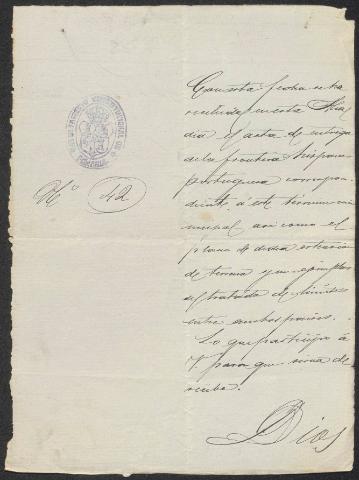 Nº 42
Con esta fecha se ha
recibido en esta Alcal
dia el acta de entrega
de la frontera hispano
portuguesa correspon-
diente á este término mu
nicipal asi como el
plano de
de terreno y un ejemplar
del tratado de límites
entre ambos países.
Lo que participo á
V. para que sirva de
recibo.
Dios